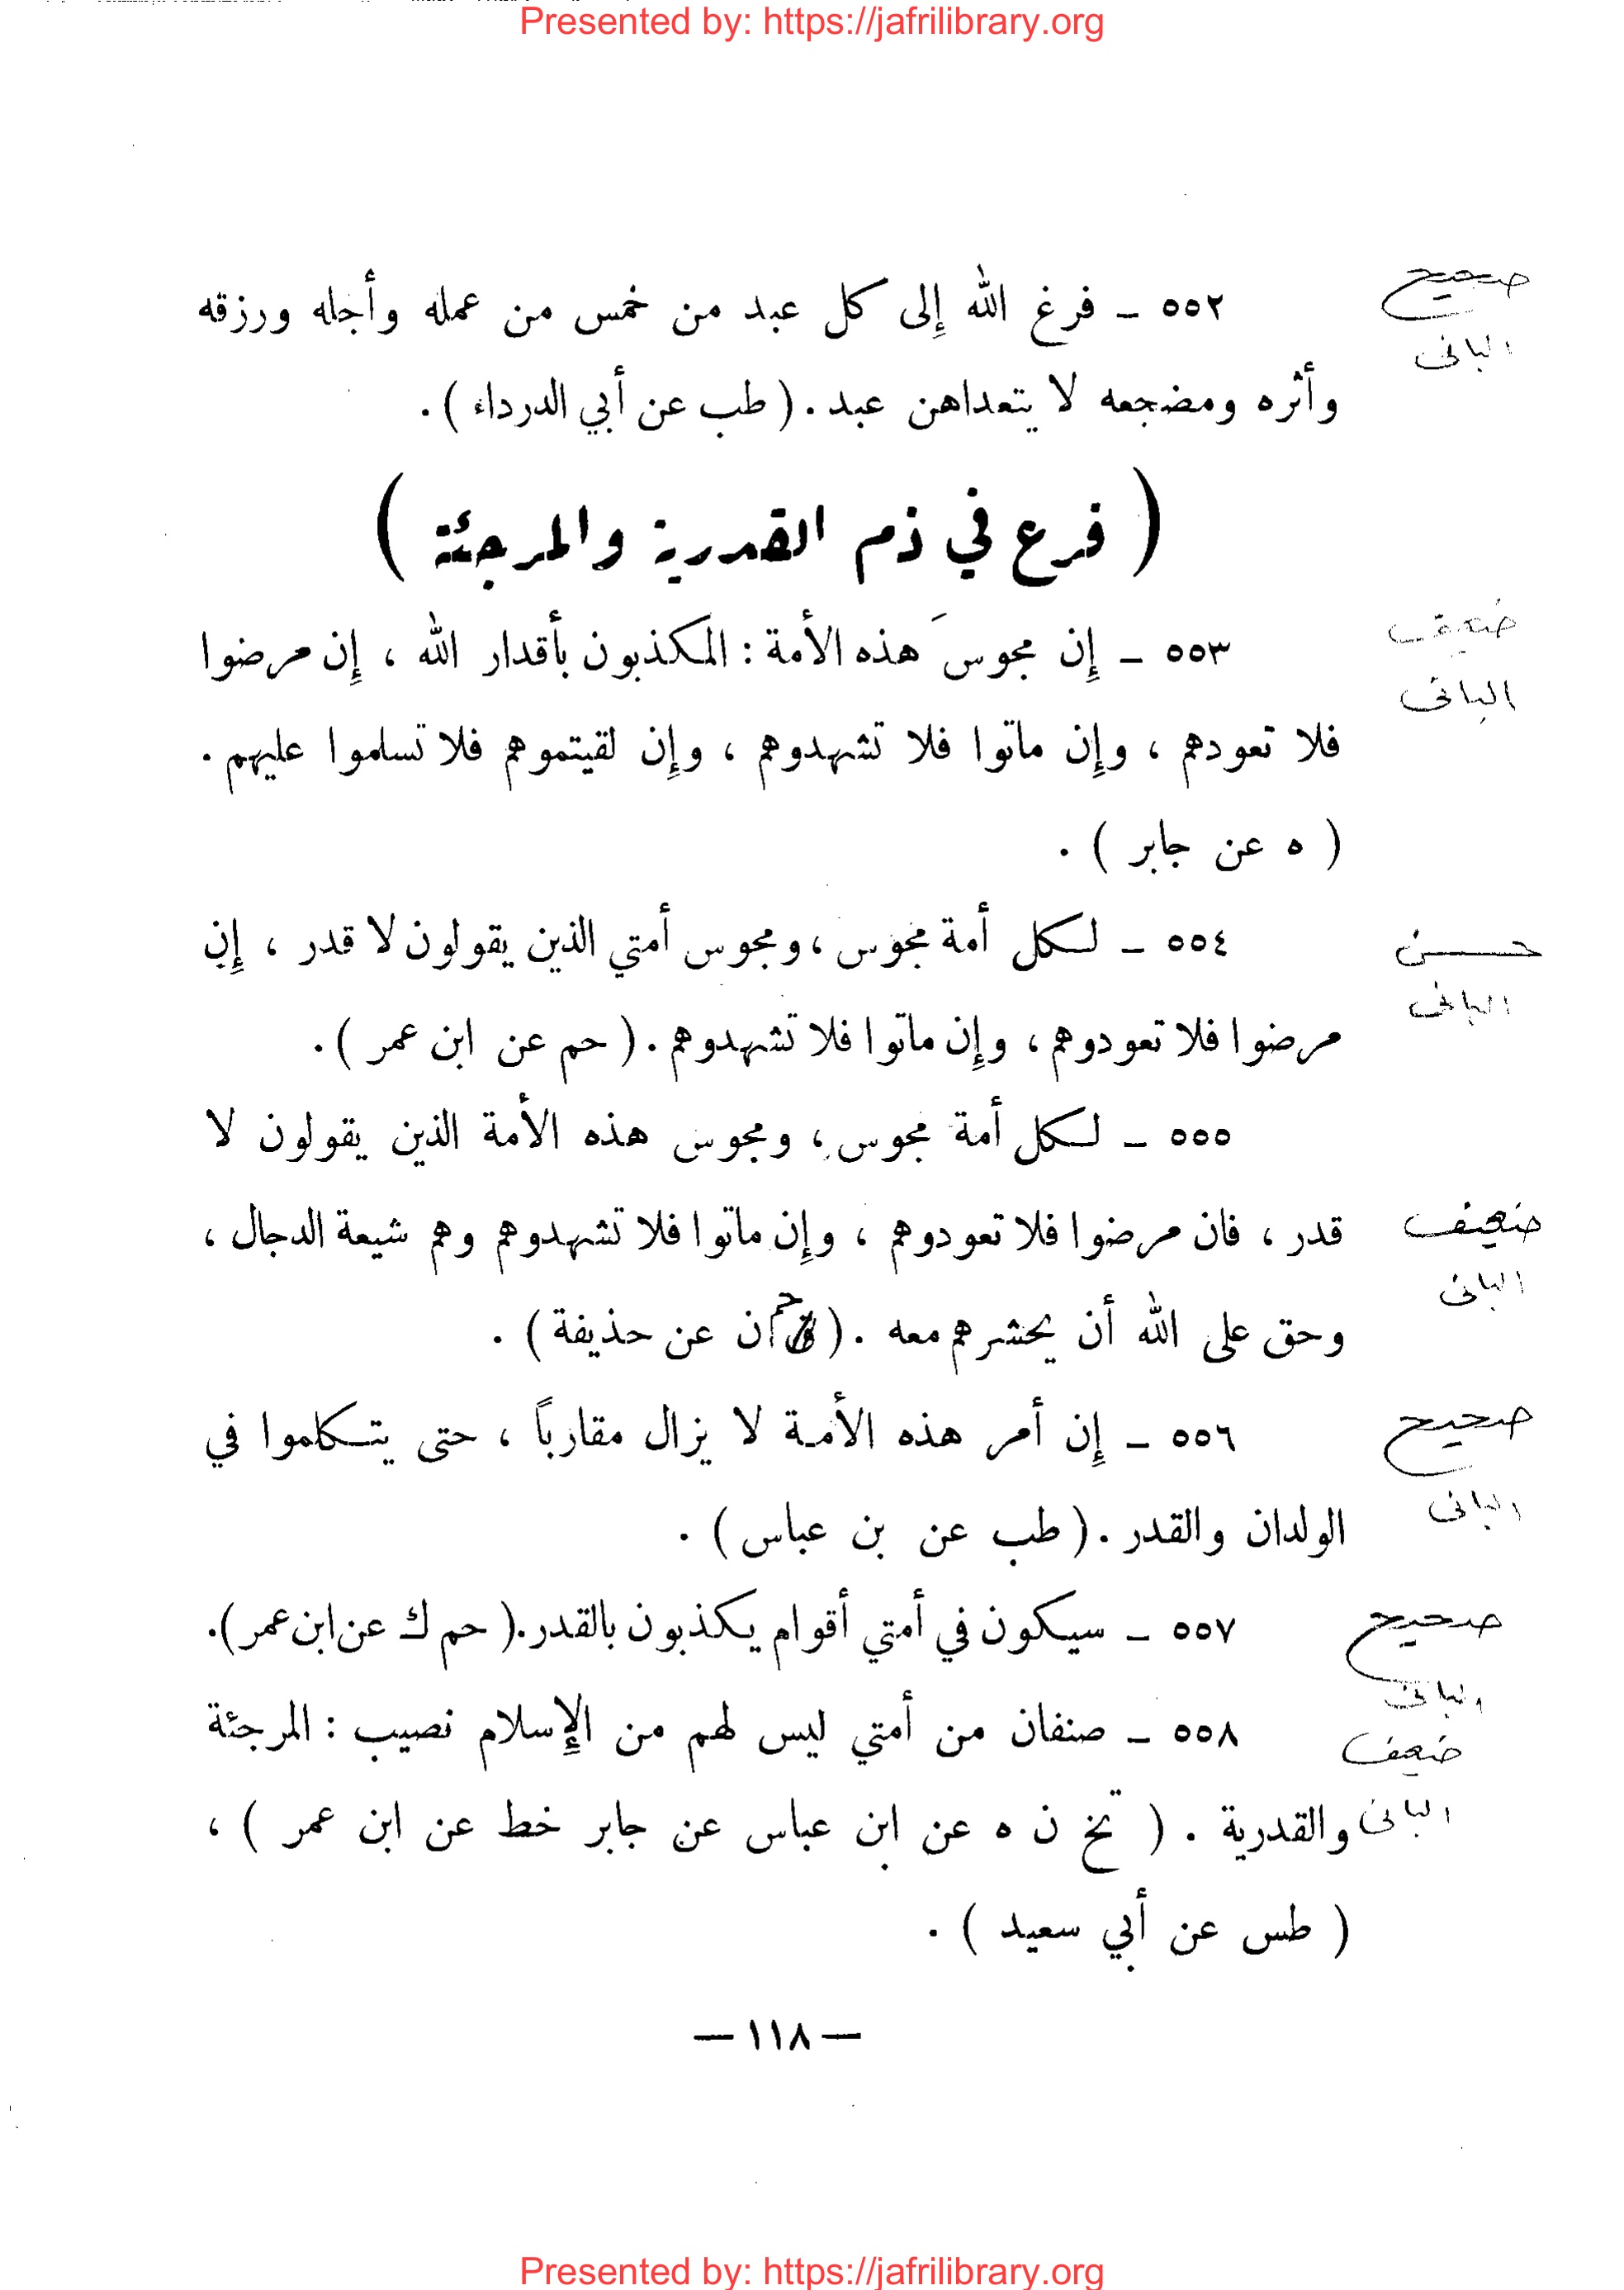 Presented by: https://jafrilibrary.org
صحيح
البانى
٥٥٢ ـ فرغ الله إلى كل عبد من خمس من عمله وأجله ورزقه
وأثره ومضجعه لا يتعداهن عبد . ( طب عن أبي الدرداء ) .
( فرع في ذم القدرية والمرجئة )
ضعيف
البانى
٥٥٣ ـ إن مجوسَ هذه الأمة : المكذبون بأقدار الله ، إن مرضوا
فلا تعودهم ، وإن ماتوا فلا تشهدوهم ، وإن لقيتموهم فلا تسلموا عليهم .
( ه عن جابر ) .
حسن
البانى
٥٥٤ ـ لكل أمة مجوس ، ومجوس أمتي الذين يقولون لا قدر ، إن
مرضوا فلا تعودوهم ، وإن ماتوا فلا تشهدوهم . ( حم عن ابن عمر ) .
٥٥٥ ـ لكل أمة مجوس ، ومجوس هذه الأمة الذين يقولون لا
ضعيف
البانى
قدر ، فان مرضوا فلا تعودوهم ، وإن ماتوا فلا تشهدوهم وهم شيعة الدجال ،
وحق على الله أن يحشرهم معه . ( حم ن عن حذيفة ) .
صحيح
البانى
٥٥٦ ـ إن أمر هذه الأمة لا يزال مقارباً ، حتى يتكلموا في
الولدان والقدر . ( طب عن بن عباس ) .
صحيح
البانى
٥٥٧ ـ سيكون في أمتي أقوام يكذبون بالقدر . ( حم ك عن ابن عمر ) .
ضعيف
البانى
٥٥٨ ـ صنفان من أمتي ليس لهم من الإسلام نصيب : المرجئة
والقدرية . ( تخ ن ه عن ابن عباس عن جابر خط عن ابن عمر ) ،
( طس عن أبي سعيد ) .
— ١١٨ —
Presented by: https://jafrilibrary.org